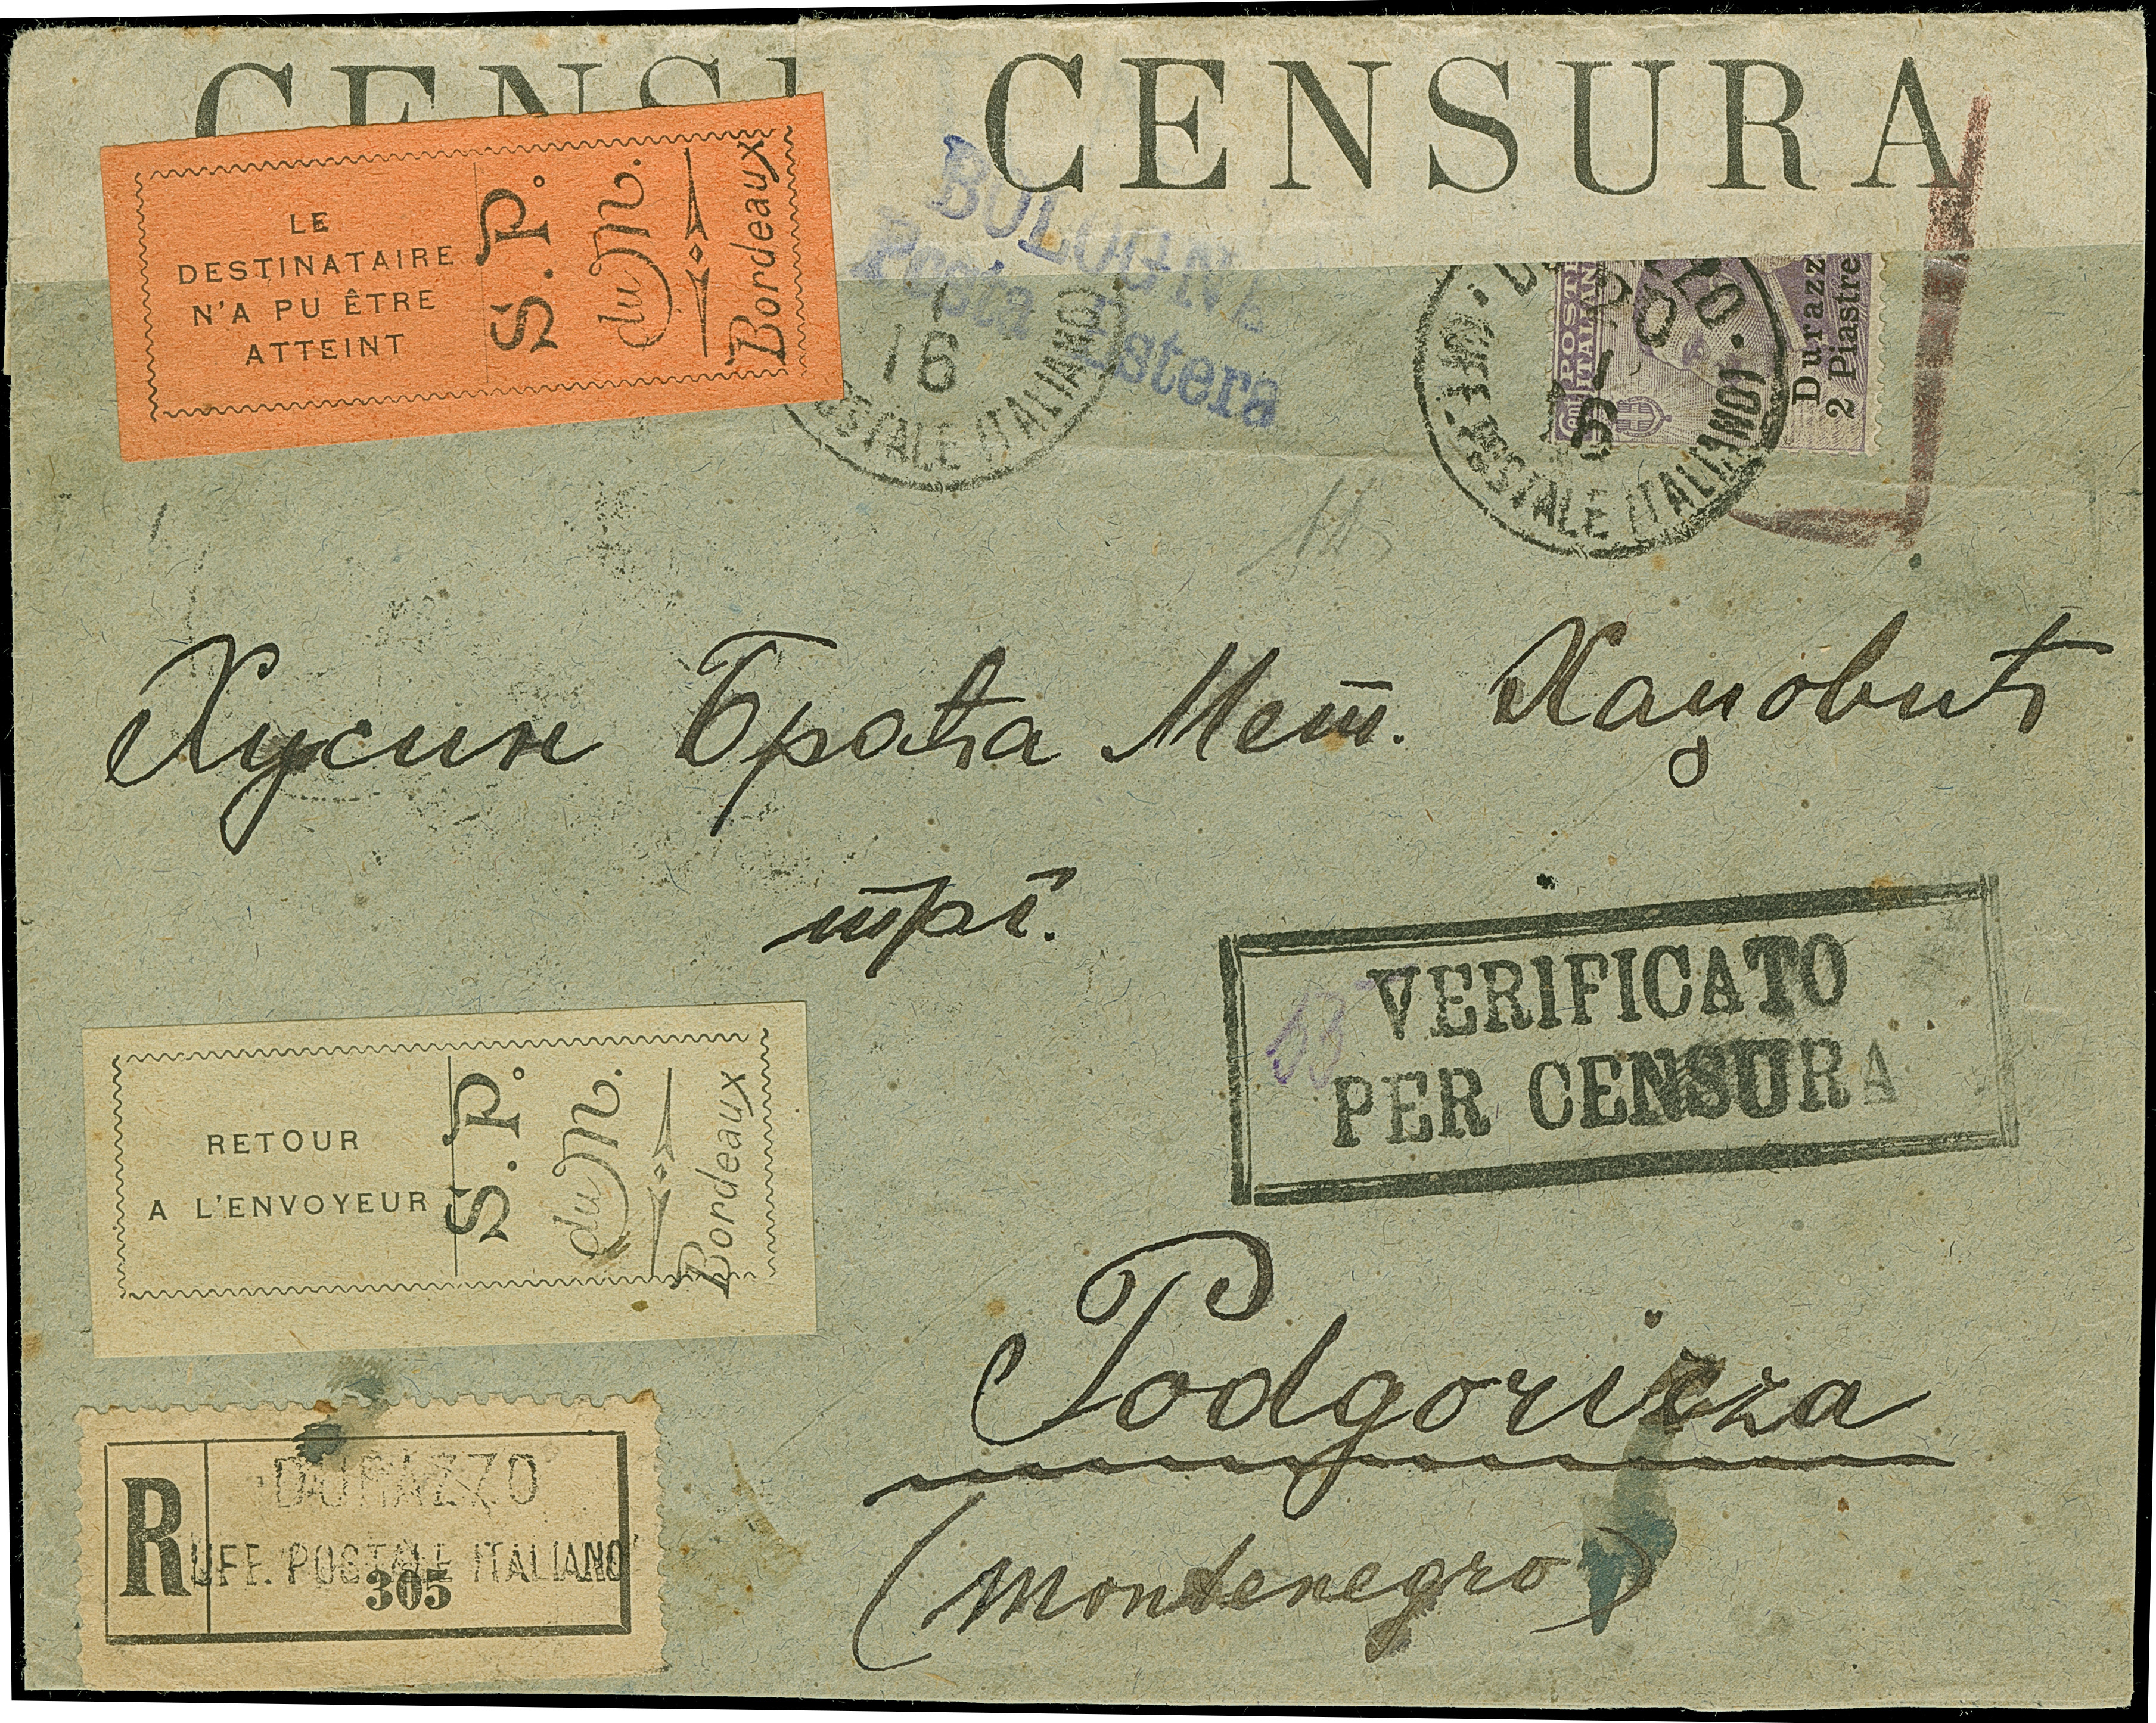 CENS
CENSURA
LE
DESTINATAIRE
N'A PU ÊTRE
ATTEINT
S. P.
du M.
Bordeaux
BOLOGNA
Posta Estera
16
POSTALE ITALIANO
POSTE
ITALIANE
Durazzo
2 Piastre
POSTALE ITALIANO
Хусин Браћа Мет. Хаџовић
трг.
VERIFICATO
PER CENSURA
RETOUR
A L'ENVOYEUR
S. P.
du M.
Bordeaux
Podgorizza
(Montenegro)
R
DURAZZO
UFF. POSTALE ITALIANO
305